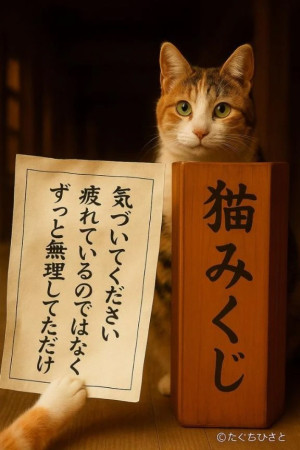 気づいてください
疲れているのではなく
ずっと無理してただけ
猫みくじ
©たぐちひさと